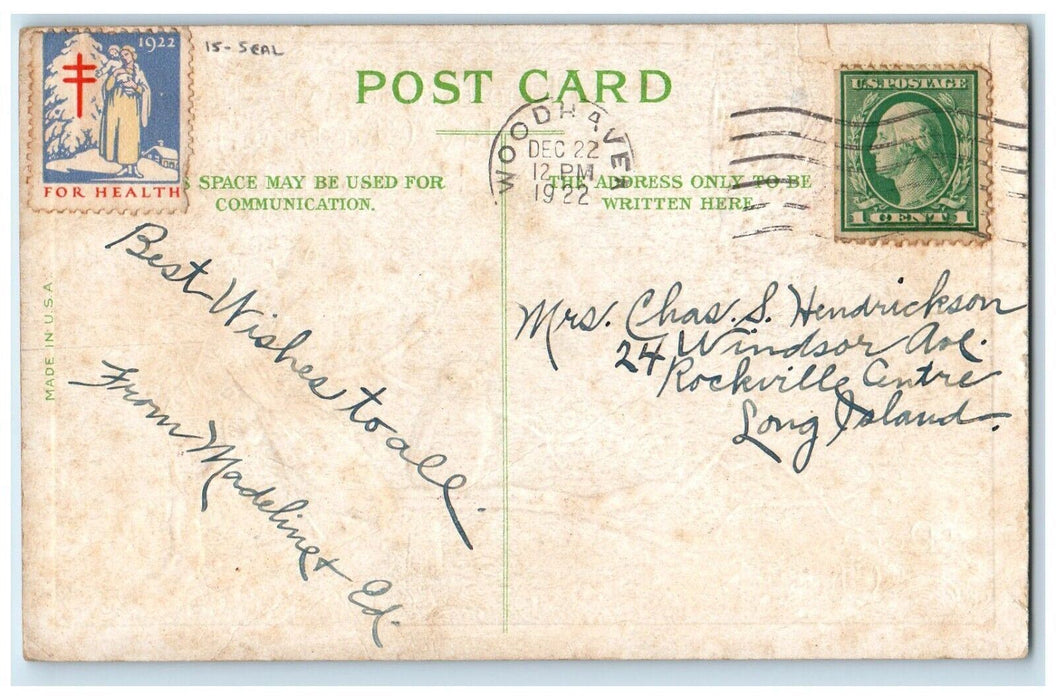 1922
FOR HEALTH
15- SEAL
POST CARD
WOODHAVEN
DEC 22
12 PM
1922
U.S. POSTAGE
1 CENT 1
S SPACE MAY BE USED FOR
COMMUNICATION.
THE ADDRESS ONLY TO BE
WRITTEN HERE
MADE IN U.S.A.
Best Wishes to all.
From Madeline + Ed.
Mrs. Chas. S. Hendrickson
24 Windsor Ave.
Rockville Centre
Long Island.